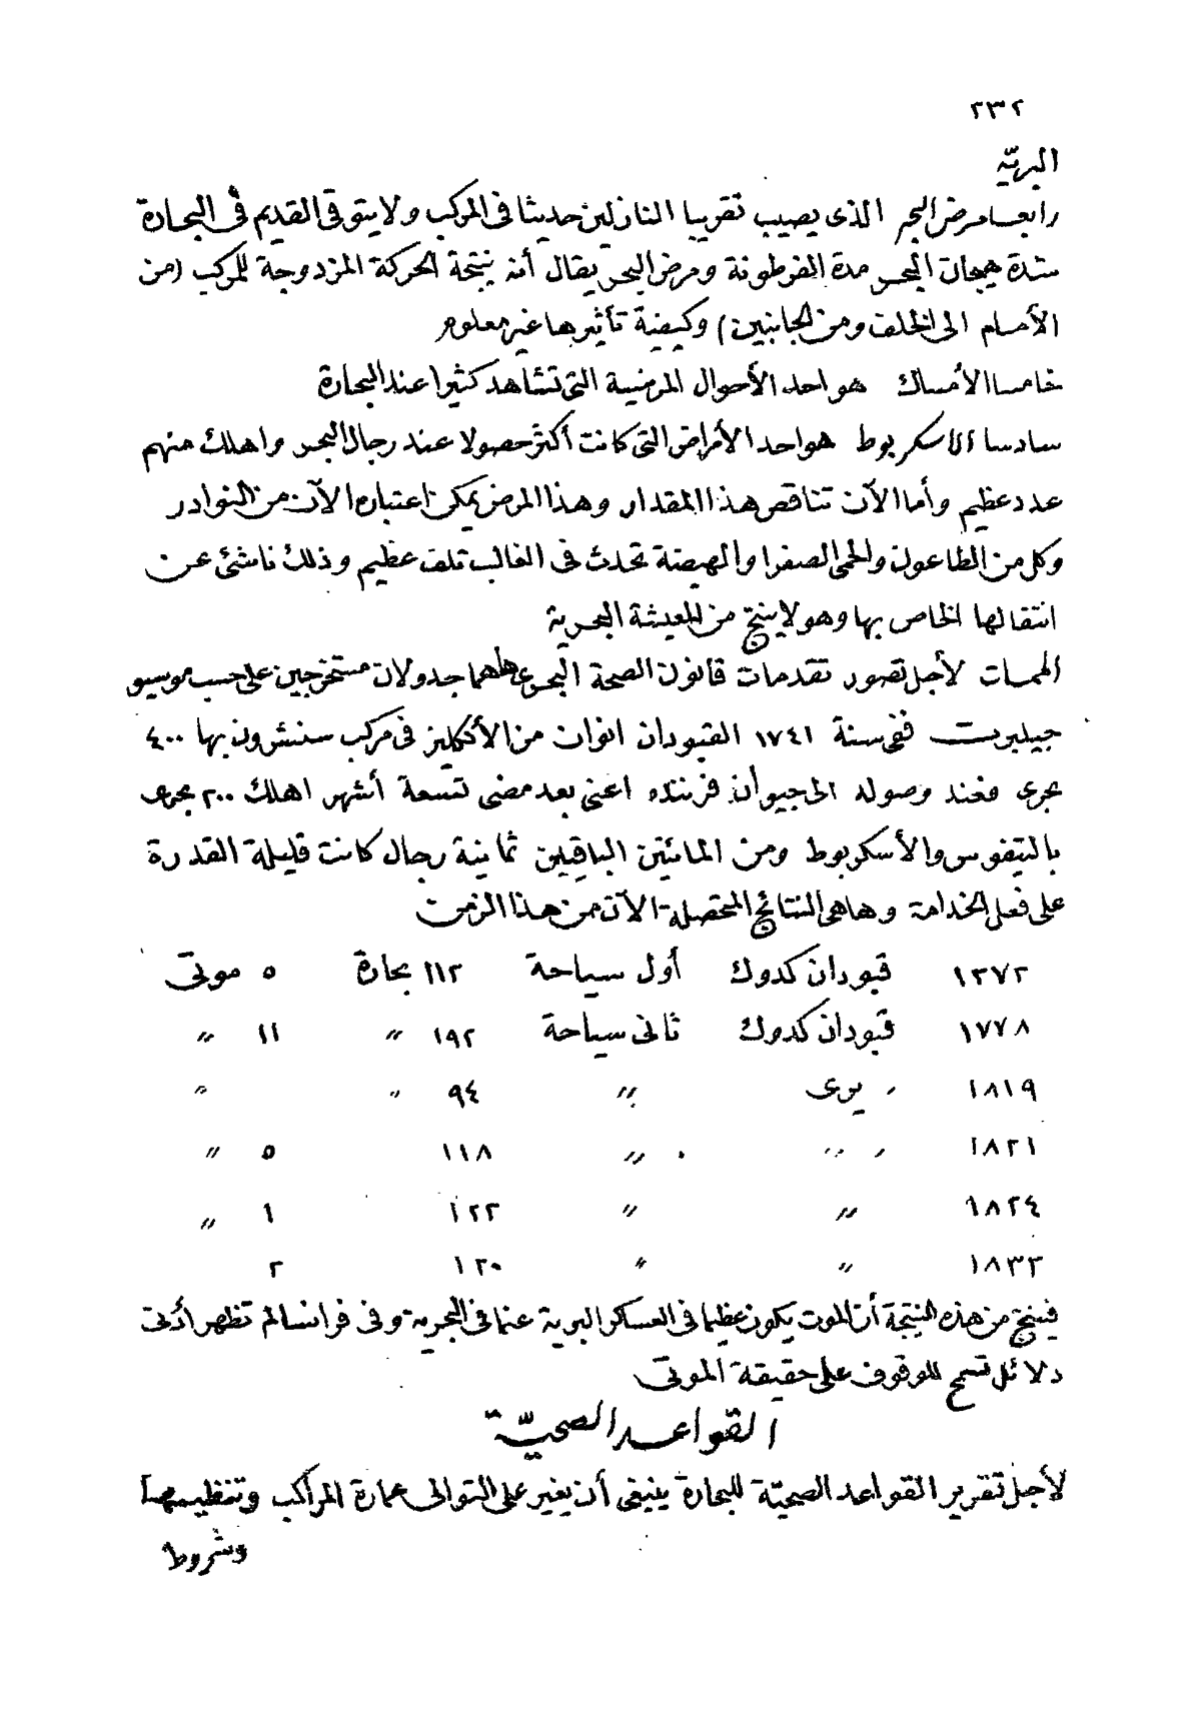 ٢٣٢
البريّة
رابعا مرض البحر الذى يصيب تقريبا النازلين حديثا فى المركب ولا يتوقى القديم فى البحارة
شدة هيجان البحر مدة الفرطونة ومرض البحر يقال أنه نتيجة الحركة المزدوجة للمركب (من
الأمام الى الخلف ومن الجانبين) وكيفية تأثيرها غير معلوم
خامسا الأمساك هو احد الأحوال المرضية التى تشاهد كثيرا عند البحارة
سادسا الاسكربوط هو احد الأمراض التى كانت أكثر حصولا عند رجال البحر واهلك منهم
عدد عظيم وأما الآن تناقص هذا المقدار وهذا المرض يمكن اعتباره الآن من النوادر
وكل من الطاعون والحمى الصفرا والهيضة تحدث فى الغالب تلف عظيم وذلك ناشئ عن
انتقالها الخاص بها وهو لا ينتج من المعيشة البحرية
الممات لأجل تصور تقدمات قانون الصحة البحرى هاهما جدولان مستخرجين على حسب موسيو
جيلبرت ففى سنة ١٧٤١ القبودان انوان من الأنكليز فى مركب سنتريون بها ٤٠٠
بحرى فعند وصوله الى جيوان فرننده اعنى بعد مضى تسعة أشهر اهلك ٢٠٠ بحرى
بالتيفوس والأسكربوط ومن المائتين الباقيين ثمانية رجال كانت قليلة القدرة
على فعل الخدامة وها هى النتائج المتحصلة الآن من هذا الزمن
١٢٧٢ قبودان كدوك أول سياحة ١١٢ بحارة ٥ موتى
١٧٧٨ قبودان كدوك ثانى سياحة ١٩٢ " ١١ "
١٨١٩ يرى " ٩٤ " "
١٨٢١ " " ١١٨ ٥ "
١٨٢٤ " " ١٢٢ ١ "
١٨٣٢ " " ١٢٠ ٢
فينتج من هذه النتيجة أن الموت يكون عظيما فى العساكر البرية عنها فى البحرية وفى فرانسا لم تظهر أدنى
دلائل تسمح للوقوف على حقيقة الموتى
القواعد الصحيّة
لأجل تقرير القواعد الصحيّة للبحارة ينبغى أن يغير على التوالى عمارة المراكب وتنظيمها
وشروط